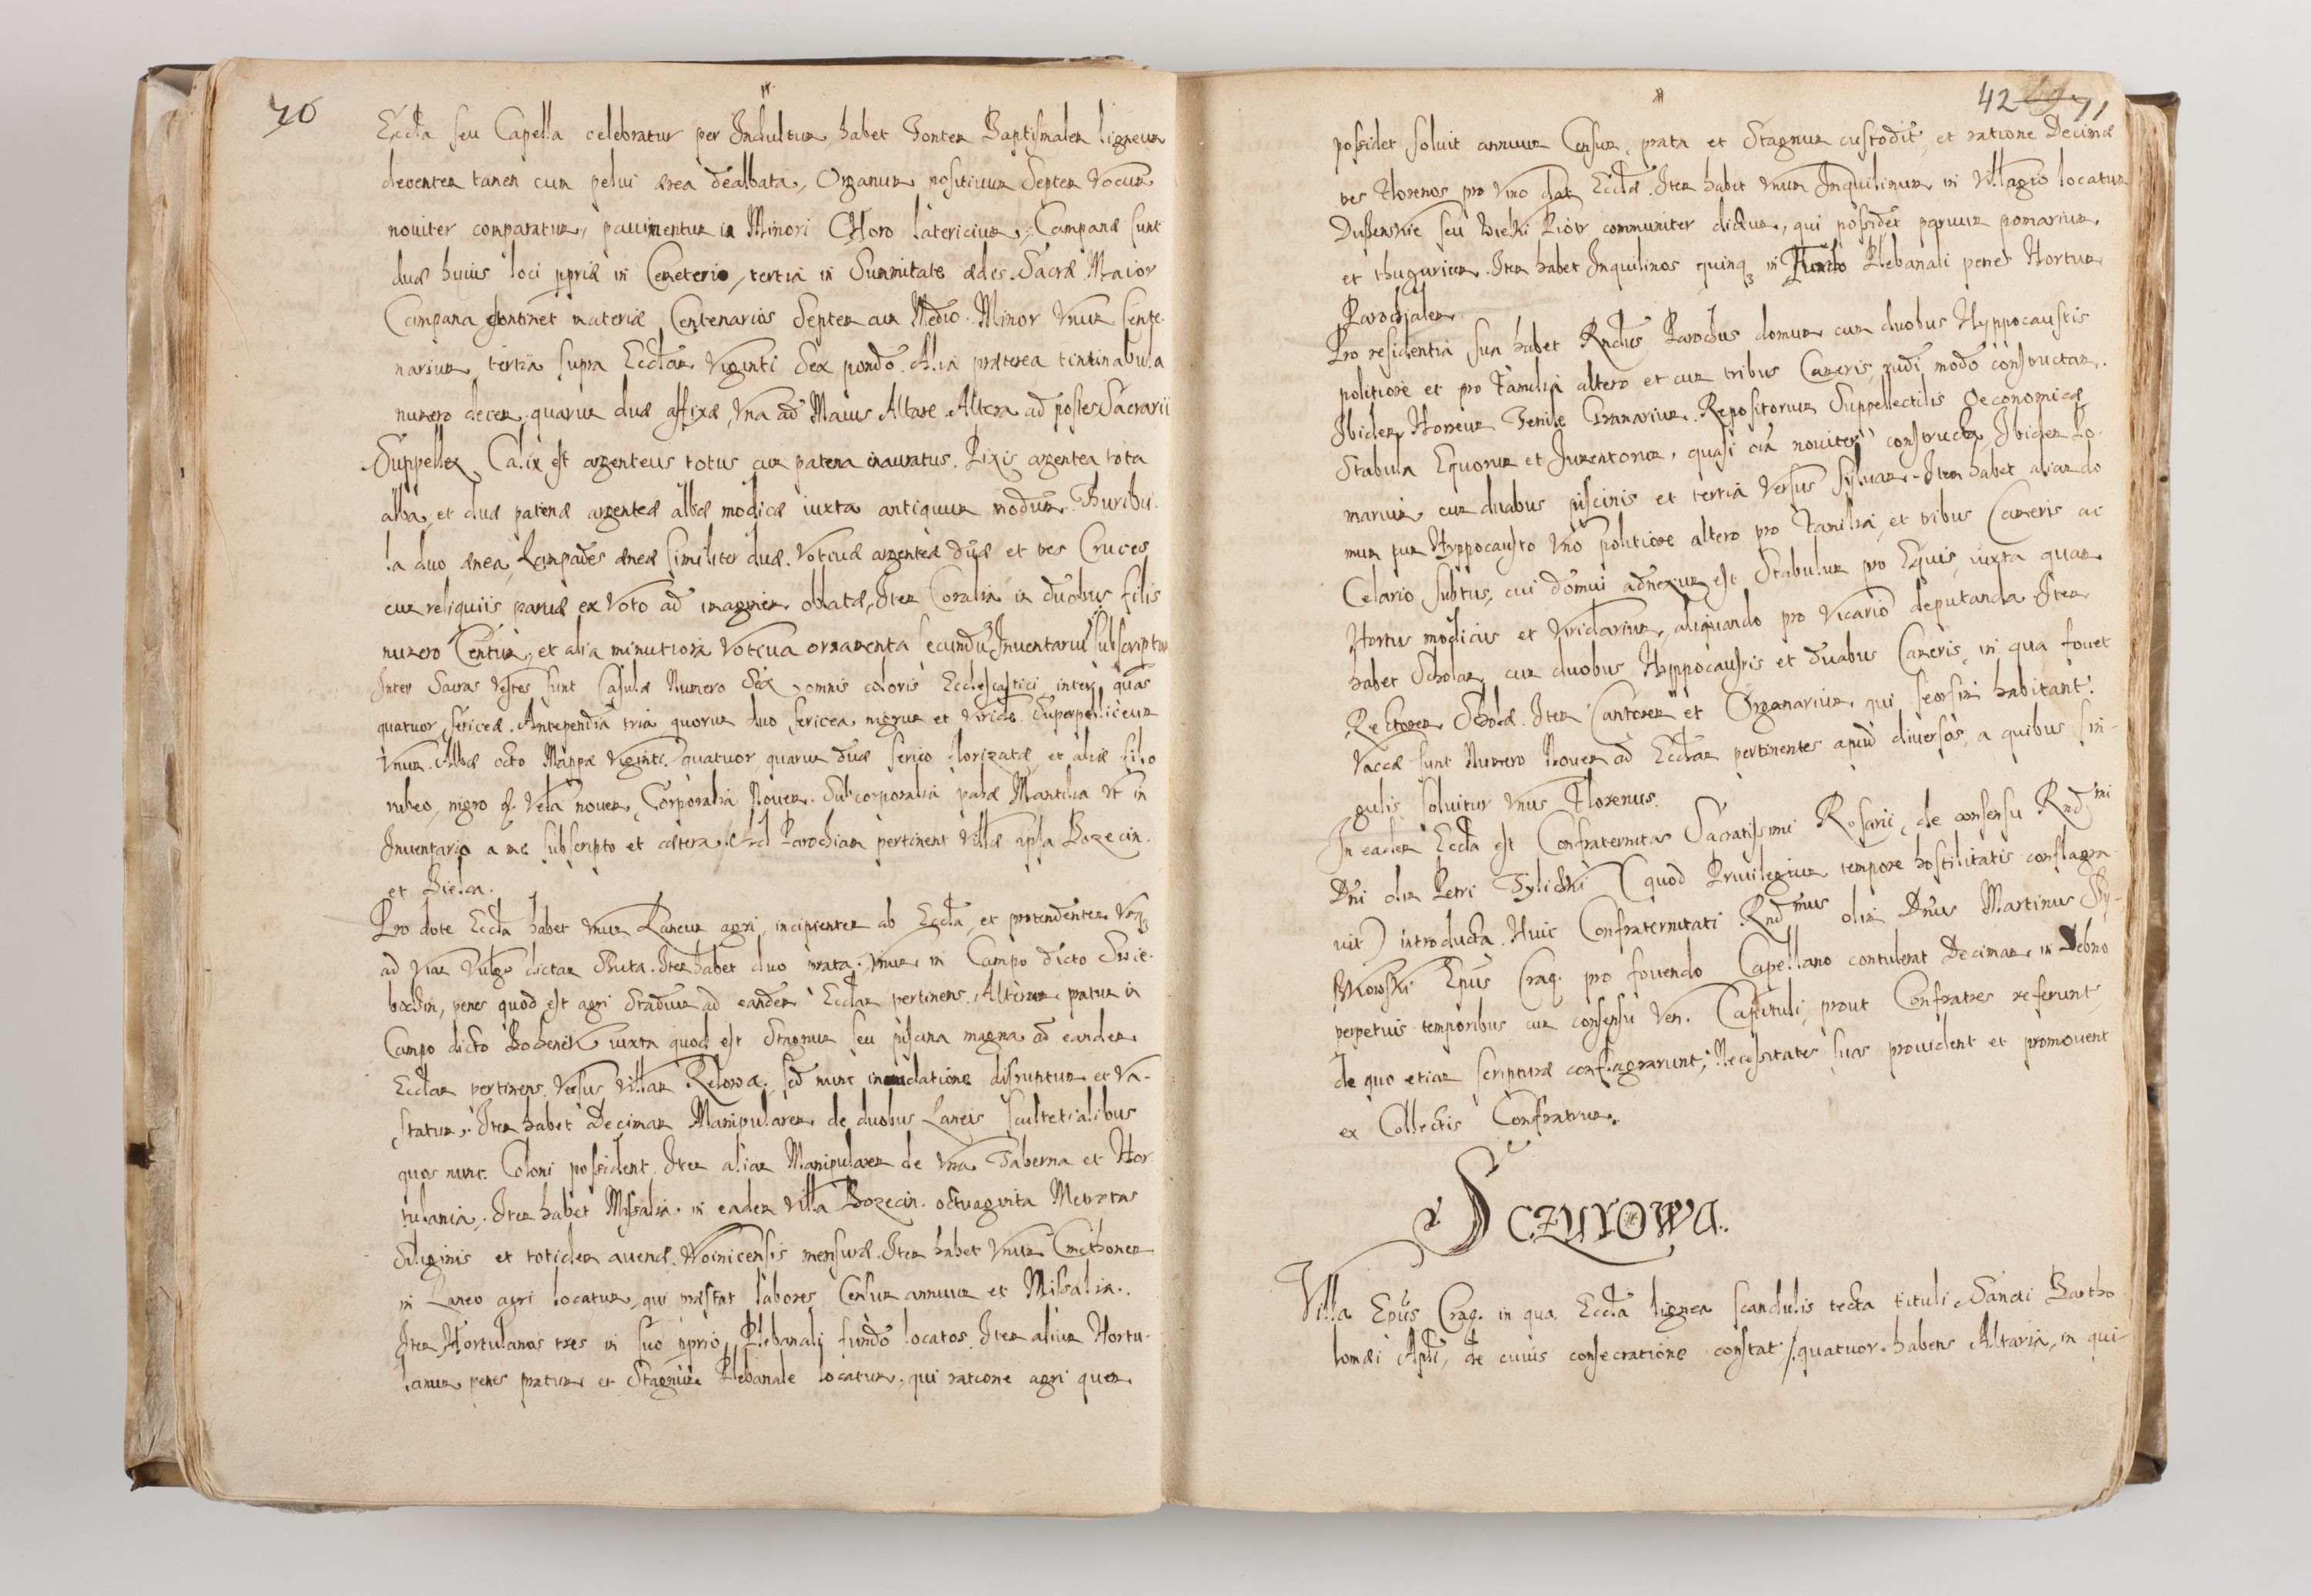 70
Eccla seu Capella celebratur per Indultum, habet Fontem Baptismalem ligneum
decentem tamen cum pelui ærea dealbata, Organum positiuum Septem Vocum
nouiter comparatum, pauimentum in Minori Choro latericium, Campanæ sunt
duæ huius loci ppriæ in Cemeterio, tertia in Summitate ædes Sacræ Maior
Campana continet materiæ Centenarios Septem cum Medio. Minor Vnum Cente-
narium tertia supra Ecclam Viginti Sex pondo. Alia præterea tintinabula
numero decem, quarum duæ affixæ, Vna ad Maius Altare Altera ad postes Sacrarii
Suppellex Calix est argenteus totus cum patena inauratus. Pixis argentea tota
alba, et duæ patenæ argenteæ albæ modicæ iuxta antiquum modum. Thuribu-
la duo ænea, Lampades æneæ similiter duæ. Votiuæ argenteæ duæ et tres Cruces
cum reliquiis paruæ ex Voto ad imaginem oblatæ, Item Coralia in duobus filis
numero Centum, et alia minutiora Votiua ornamenta secundū Inuentarium subscriptum
Inter Sacras Vestes sunt Casulæ Numero Sex omnis coloris Ecclesiastici, inter quas
quatuor sericeæ. Antependia tria quorum duo sericea nigrum et Viride. Superpelliceum
Vnum. Albæ octo Mappæ Viginti quatuor, quarum duæ serico florizatæ, et aliæ filo
rubeo, nigro &. Vela nouem, Corporalia Nouem. Subcorporalia palæ Mantilia Vt in
Inuentario a me subscripto et cætera. Ad Parochiam pertinent Villæ ipsa Borzecin.
et Bielca.
Pro dote Eccla habet Vnum Laneum agri, incipientem ab Eccla, et protendentem Vsq3
ad Viam Vulgo dictam Bruta. Item habet duo prata. Vnum in Campo dicto Swie-
bochin, penes quod est agri Stadium ad eandem Ecclam pertinens. Alterum pratum in
Campo dicto Bochenek iuxta quod est Stagnum seu piscina magna ad eandem
Ecclam pertinens, Versus Villam Relowa, sed nunc inundatione disruptum et Va-
statum. Item habet Decimam Manipularem de duobus Laneis scultetialibus
quos nunc Coloni possident. Item aliam Manipularem de Vna Taberna et Hor-
tulania. Item habet Missalia in eadem Villa Borzecin. octuaginta Metretas
Siliginis et totidem auenæ Woinicensis mensuræ. Item habet Vnum Cmethonem
in Laneo agri locatum, qui præstat labores Censum annuum et Missalia.
Item Hortulanos tres in suo pprio Plebanali fundo locatos. Item alium Hortu-
lanum penes pratum et Stagnum Plebanale locatum, qui ratione agri quem
42 71
possidet soluit annuum Censum, prata et Stagnum custodit, et ratione Decimæ
tres Florenos pro Vino dat Ecclæ. Item habet Vnum Inquilinum in Villagio locatum
seu communiter dictum, qui possidet paruum pomarium,
et thugurium. Item habet Inquilinos quinq3 in Fundo Plebanali penes Hortum
Parochialem.
Pro residentia sua habet Rndus Parochus domum cum duobus Hyppocaustis
politiore et pro Familia altero et cum tribus Cameris, rudi modo constructam.
Ibidem Horreum Fenile Granarium. Repositorium Suppellectilis Oeconomicæ
Stabula Equorum et Iumentorum, quasi oia nouiter constructa, Ibidem Po-
marium cum duabus piscinis et tertia Versus Syluam. Item habet aliam do-
mum cum Hyppocausto Vno politiore altero pro Familia, et tribus Cameris ac
Celario Subtus, cui domui adnexum est Stabulum pro Equis, iuxta quam
Hortus modicus et Viridarium, aliquando pro Vicario deputanda. Item
habet Scholam cum duobus Hyppocaustis et duabus Cameris, in qua fouet
Rectorem Scholæ. Item Cantorem et Organarium, qui seorsim habitant.
Vaccæ sunt Numero Nouem ad Ecclam pertinentes apud diuersos, a quibus sin-
gulis soluitur Vnus Florenus.
In eadem Eccla est Confraternitas Sacratissimi Rosarii, de consensu Rndmi
Dni olim Petri Tylicki (quod Priuilegium tempore hostilitatis conflagra-
uit) introducta. Huic Confraternitati Rndmus olim Dnus Martinus Szy-
szkowski Epūs Crac. pro fouendo Capellano contulerat Decimam in Debno
perpetuis temporibus cum consensu Ven. Capituli, prout Confratres referunt,
de quo etiam scripturæ conflagrarunt, Necessitates suas prouident et promouent
ex Collectis Confratrum.
Sczurowa.
Villa Epūs Crac. in qua Eccla lignea scandulis tecta tituli Sancti Bartho-
lomæi Apli, de cuius consecratione constat, quatuor habens Altaria, in qui-